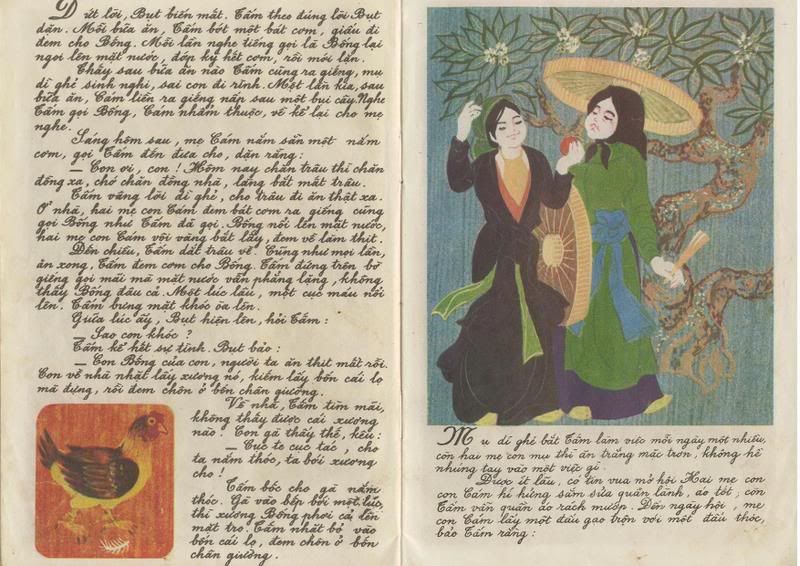 Dứt lời, Bụt biến mất. Tấm theo đúng lời Bụt
dặn. Mỗi bữa ăn, Tấm bớt một bát cơm, giấu đi
đem cho Bống. Mỗi lần nghe tiếng gọi là Bống lại
ngoi lên mặt nước, đớp kỳ hết cơm, rồi mới lặn.
Thấy sau bữa ăn nào Tấm cũng ra giếng, mụ
dì ghẻ sinh nghi, sai con đi rình. Một lần kia, sau
bữa ăn, Cám liền ra giếng nấp sau một bụi cây. Nghe
Tấm gọi Bống, Cám nhẩm thuộc, về kể lại cho mẹ
nghe.
Sáng hôm sau, mẹ Cám nắm sẵn một nắm
cơm, gọi Tấm đến đưa cho, dặn rằng:
— Con ơi, con! Hôm nay chăn trâu thì chăn
đồng xa, chớ chăn đồng nhà, làng bắt mất trâu.
Tấm vâng lời dì ghẻ, cho trâu đi ăn thật xa.
Ở nhà, hai mẹ con Cám đem bát cơm ra giếng cũng
gọi Bống như Tấm đã gọi. Bống nổi lên mặt nước,
hai mẹ con Cám vội vàng bắt lấy, đem về làm thịt.
Đến chiều, Tấm dắt trâu về. Cũng như mọi lần,
ăn xong, Tấm đem cơm cho Bống. Tấm đứng trên bờ
giếng gọi mãi mà mặt nước vẫn phẳng lặng, không
thấy Bống đâu cả. Một lúc lâu, một cục máu nổi
lên. Tấm bưng mặt khóc òa lên.
Giữa lúc ấy, Bụt hiện lên, hỏi Tấm:
— Sao con khóc?
Tấm kể hết sự tình. Bụt bảo:
— Con Bống của con, người ta ăn thịt mất rồi.
Con về nhà nhặt lấy xương nó, kiếm lấy bốn cái lọ
mà đựng, rồi đem chôn ở bốn chân giường.
Về nhà, Tấm tìm mãi,
không thấy được cái xương
nào. Con gà thấy thế, kêu:
— Cục te cục tác, cho
ta nắm thóc, ta bới xương
cho!
Tấm bốc cho gà nắm
thóc. Gà vào bếp bới một lúc,
thì xương Bống phơi cả lên
mặt tro. Tấm nhặt bỏ vào
bốn cái lọ, đem chôn ở bốn
chân giường.
Mụ dì ghẻ bắt Tấm làm việc mỗi ngày một nhiều,
còn hai mẹ con mụ thì ăn trắng mặc trơn, không hề
nhúng tay vào một việc gì.
Được ít lâu, có tin vua mở hội. Hai mẹ con
con Cám hí hửng sắm sửa quần lành, áo tốt, còn
Tấm vẫn quần áo rách mướp. Đến ngày hội, mẹ
con Cám lấy một đấu gạo trộn với một đấu thóc,
bảo Tấm rằng: